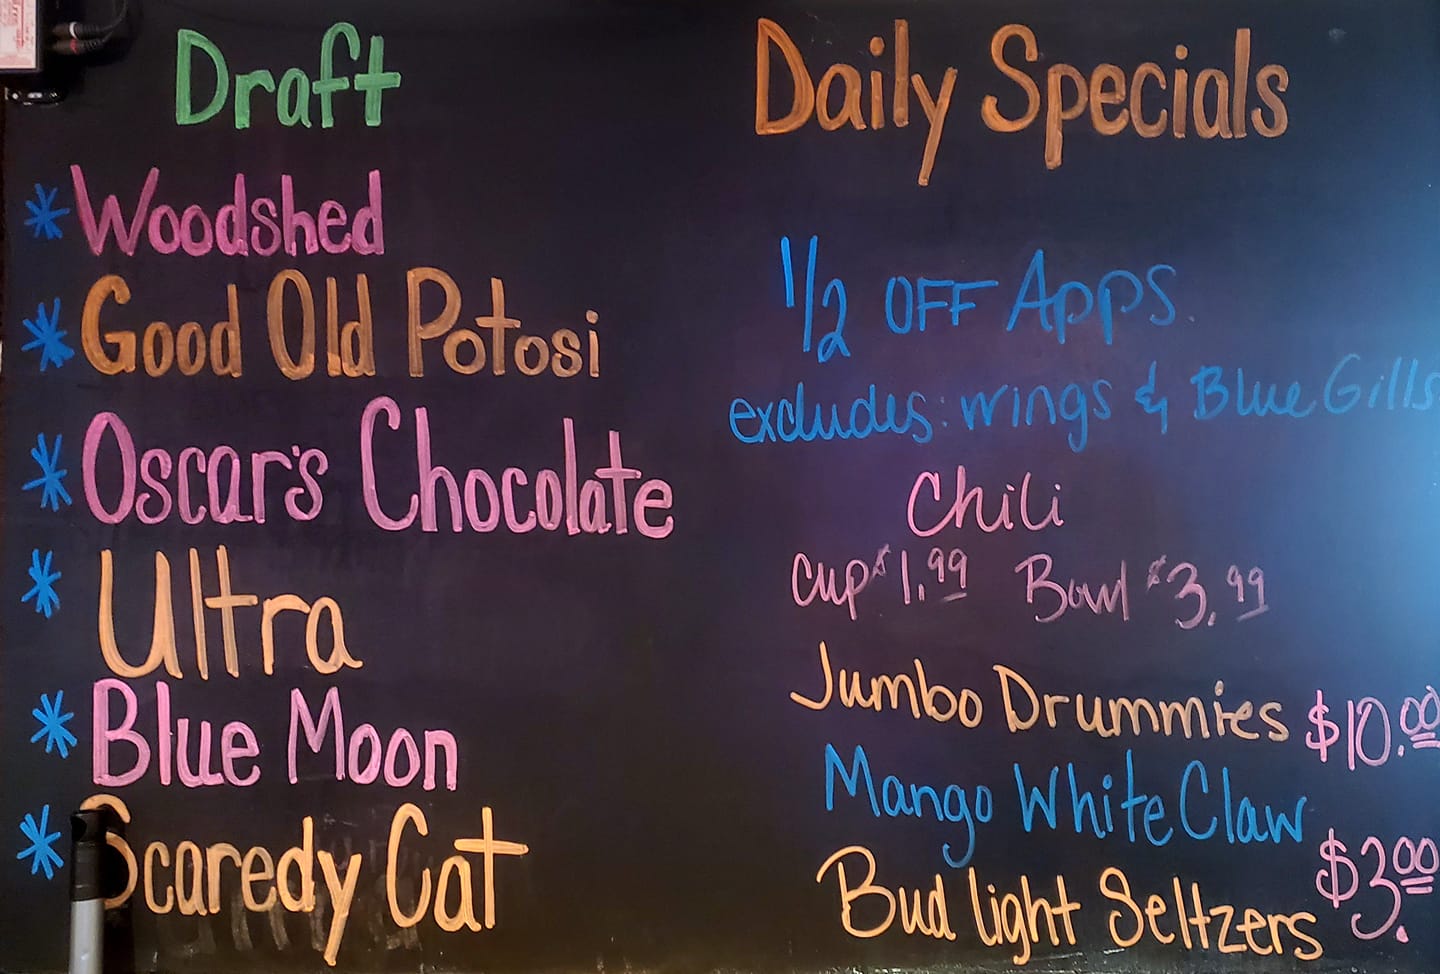 Draft
* Woodshed
* Good Old Potosi
* Oscar's Chocolate
* Ultra
* Blue Moon
* Scaredy Cat
Daily Specials
1/2 OFF Apps.
excludes: wings & Blue Gills
Chili
cup $1.99 Bowl $3.99
Jumbo Drummies $10.00
Mango White Claw
$3.00
Bud light Seltzers